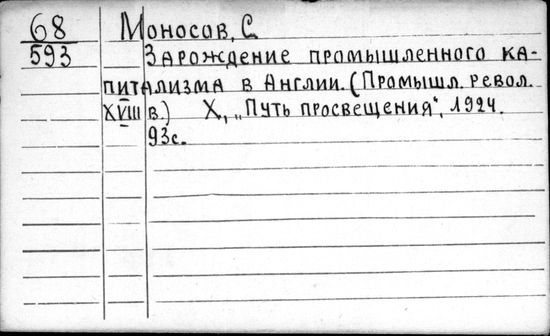 68 Моносов, С.
593 Зарождение промышленного ка-
питализма в Англии. (Промышл. револ.
XVIII в.) Х., „Путь просвещения", 1924.
93с.